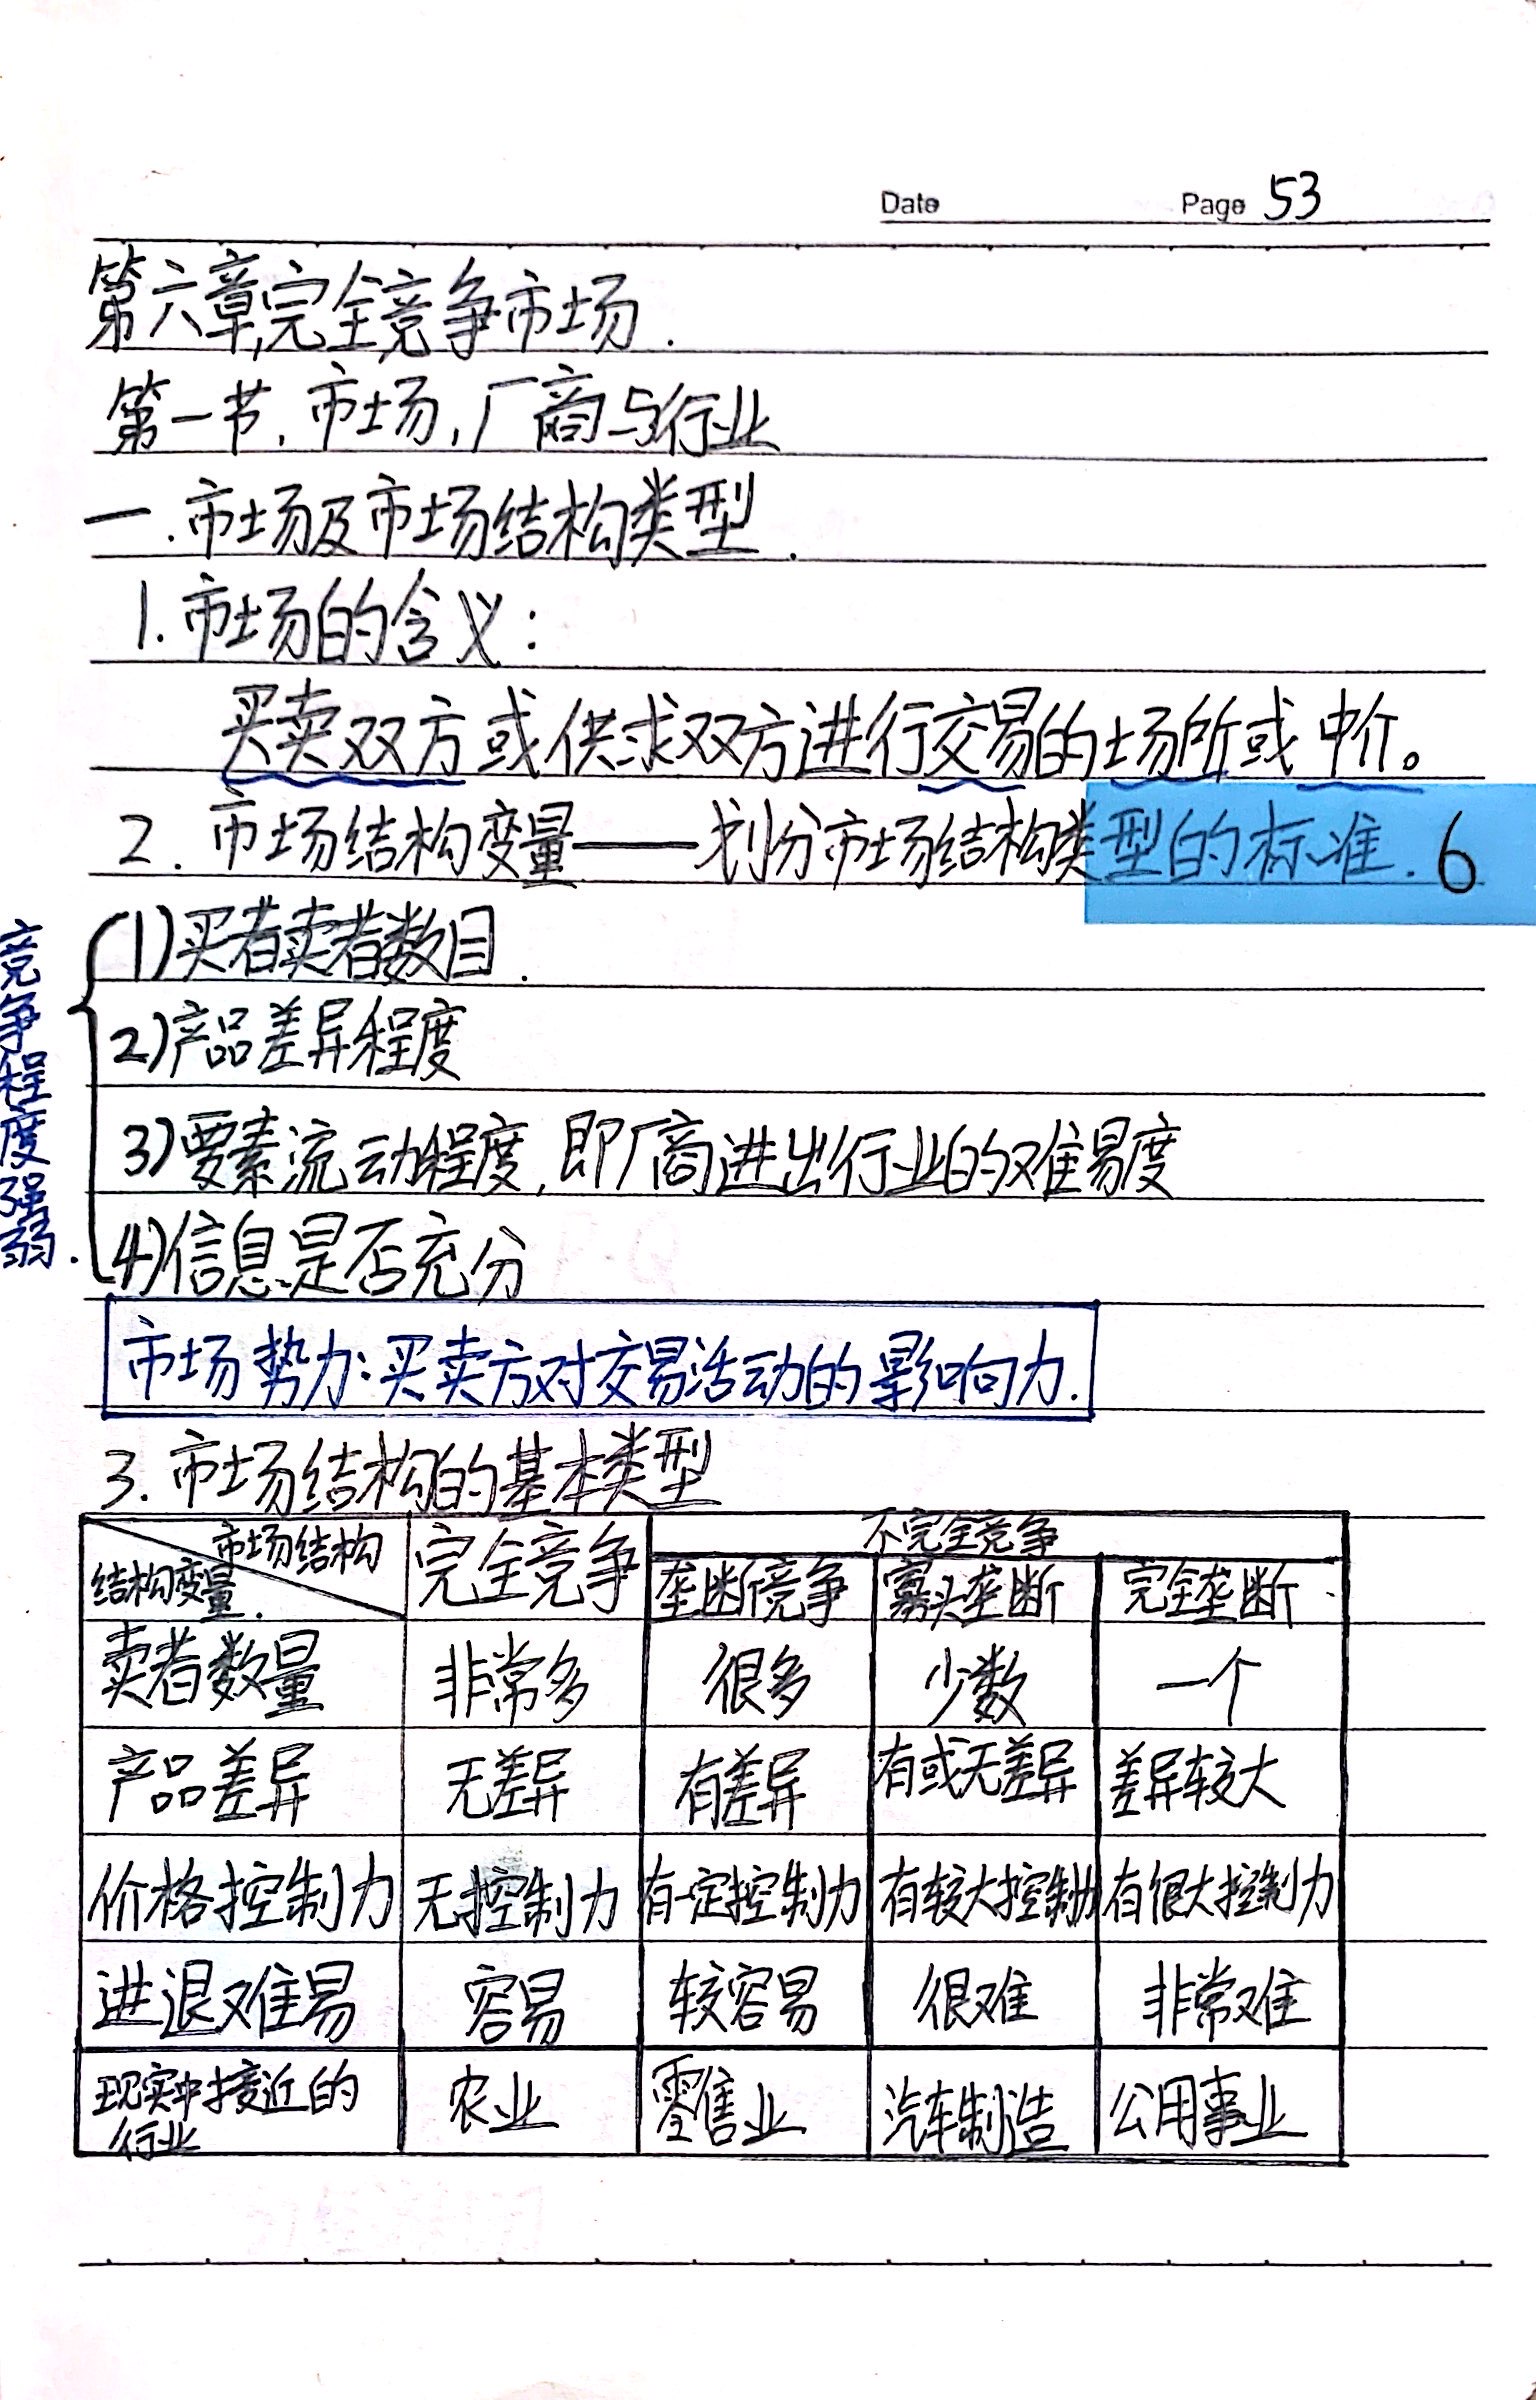 Date Page 53
第六章,完全竞争市场.
第一节.市场,厂商与行业
一.市场及市场结构类型.
1.市场的含义:
买卖双方或供求双方进行交易的场所或中介。
2.市场结构变量——划分市场结构类型的标准. 6
竞争程度强弱.
1)买者卖者数目.
2)产品差异程度
3)要素流动程度,即厂商进出行业的难易度
4)信息是否充分
市场势力:买卖方对交易活动的影响力.
3.市场结构的基本类型
市场结构 完全竞争 不完全竞争
结构变量. 垄断竞争 寡头垄断 完全垄断
卖者数量 非常多 很多 少数 一个
产品差异 无差异 有差异 有或无差异 差异较大
价格控制力 无控制力 有一定控制力 有较大控制力 有很大控制力
进退难易 容易 较容易 很难 非常难
现实中接近的 农业 零售业 汽车制造 公用事业
行业